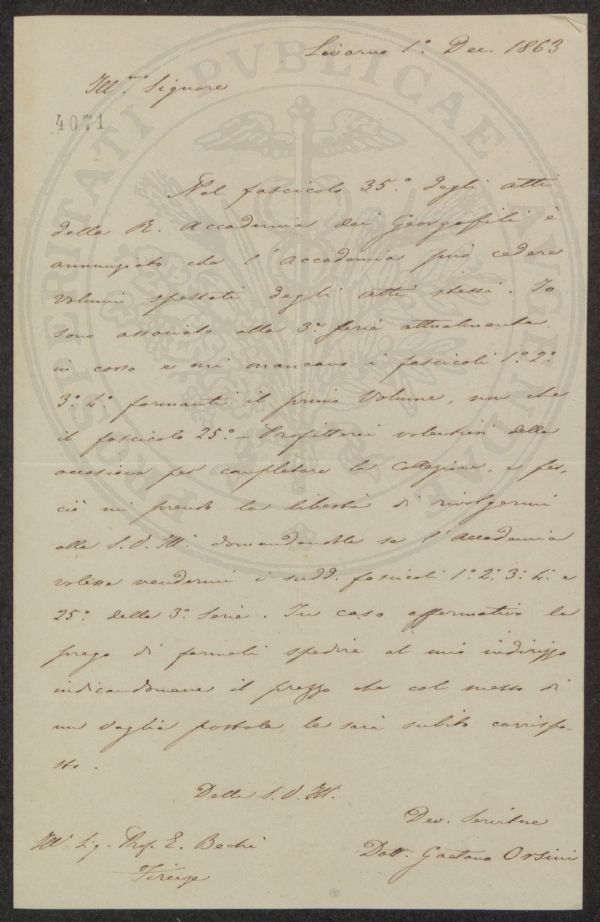 Livorno 1° Dec. 1863
Ill.mo Signore
4071
Nel fascicolo 35.° degli atti
della R. Accademia dei Georgofili è
annunziato che l'Accademia può cedere
volumi spezzati degli atti stessi. Io
sono associato alla 3a Serie attualmente
in corso e mi mancano i fascicoli 1.° 2.°
3.° 4.° formanti il primo Volume, non che
il fascicolo 25.° - Profitterei volentieri della
occasione per completare la collezione, e per-
ciò mi prendo la libertà di rivolgermi
alla S. V. Ill. domandandole se l'Accademia
volesse vendermi i sudd. fascicoli 1.° 2.° 3.° 4.° e
25.° della 3.a Serie. In caso affermativo la
prego di farmeli spedire al mio indirizzo
indicandomene il prezzo che col mezzo di
un vaglia postale le sarà subito corrispo-
sto.
Della S. V. Ill.
Dev. Servitore
Ill. Sig. Prof. E. Bechi
Dott. Gaetano Orsini
Firenze
PROSPERITATI PUBLICAE AUGENDAE